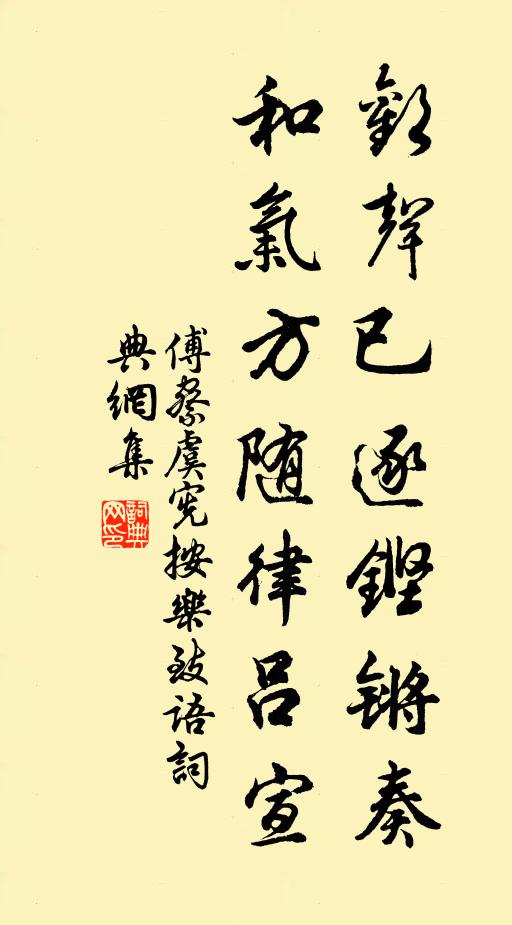 歡聲已逐鏗鏘奏
和氣方随律呂宣
傅察虞宪按樂致語詞
典網集
詞典
网印